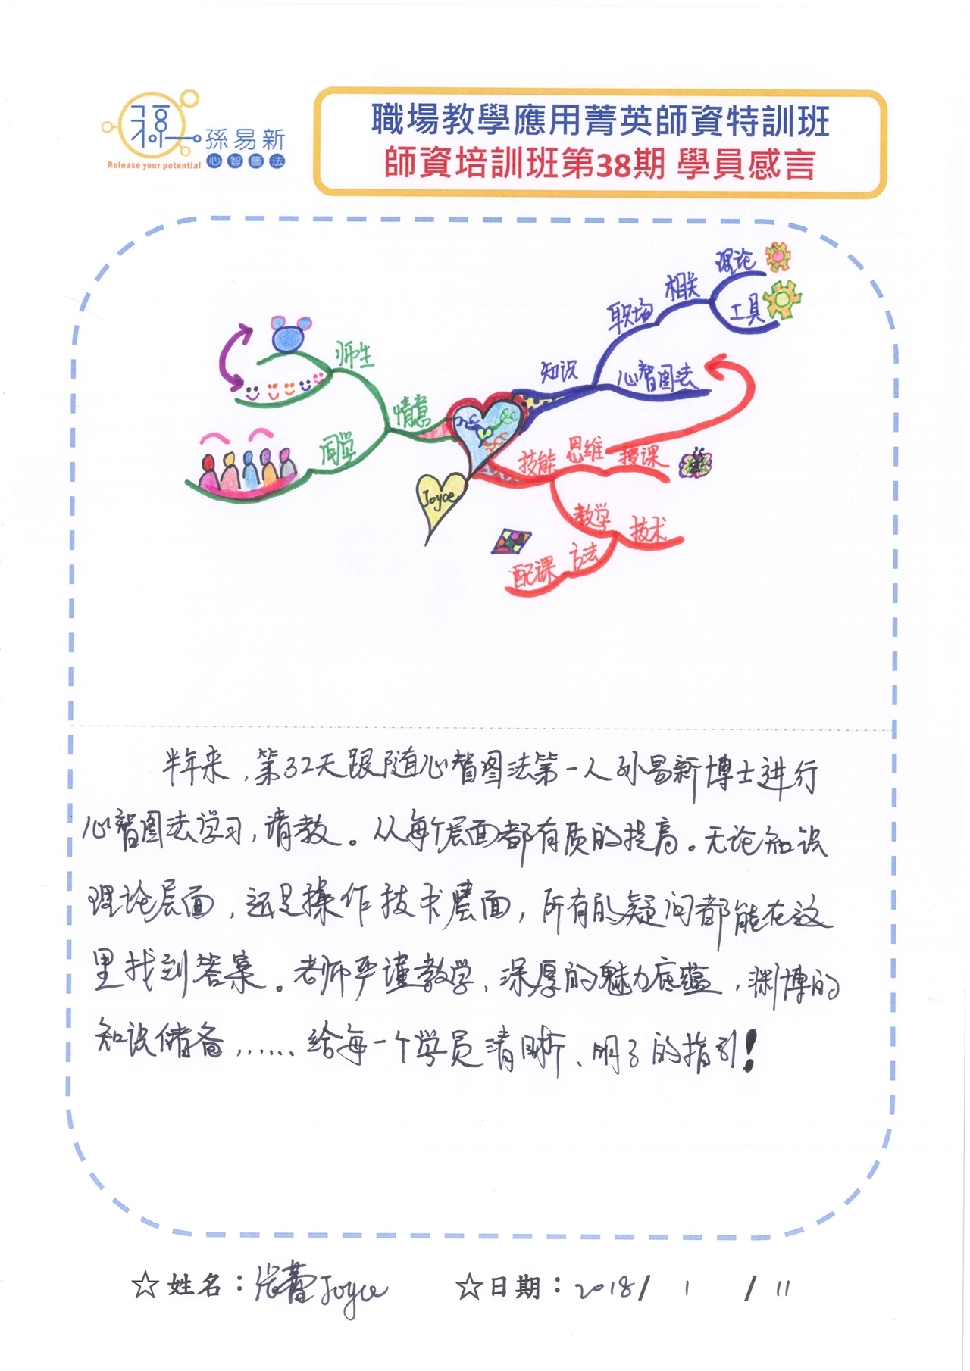 孫易新
心智圖法
Release your potential
職場教學應用菁英師資特訓班
師資培訓班第38期 學員感言
理论
相关
职场
工具
知识
心智图法
师生
情意
同学
Joyce
技能 思维 授课
教学
技术
配课 方法
半年来,第32天跟随心智图法第一人孙易新博士进行
心智图法学习,请教。从每个层面都有质的提高。无论知识
理论层面,还是操作技术层面,所有的疑问都能在这
里找到答案。老师严谨教学、深厚的魅力底蕴、渊博的
知识储备......给每一个学员清晰、明了的指引!
☆姓名:张蕾Joyce ☆日期:2018/ 1 / 11